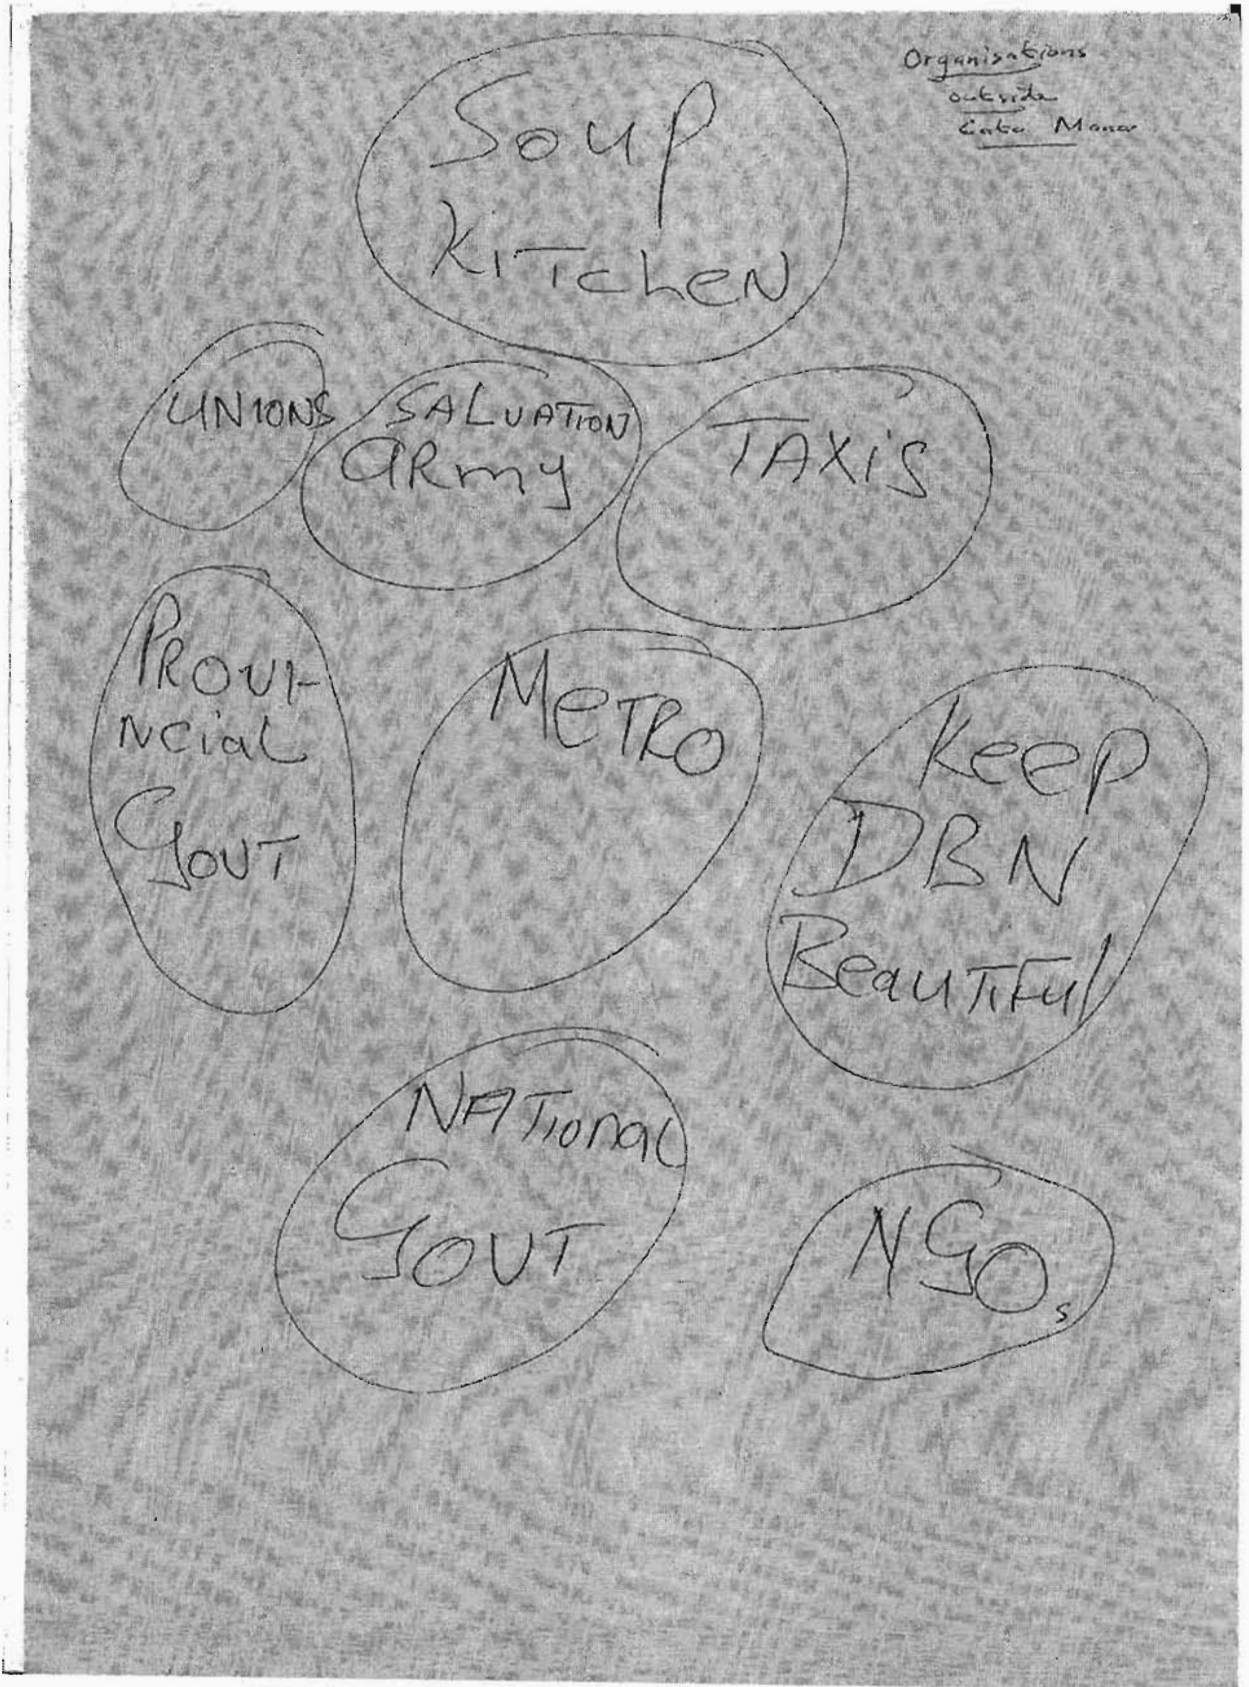 Organisations
outside
Cato Manor
Soup
KiTcheN
UNIONS
SALVATION
aRmy
TAXiS
PROVI-
NciaL
GOVT
MeTRO
Keep
DBN
BeauTiFul
NATional
GOVT
NGOs